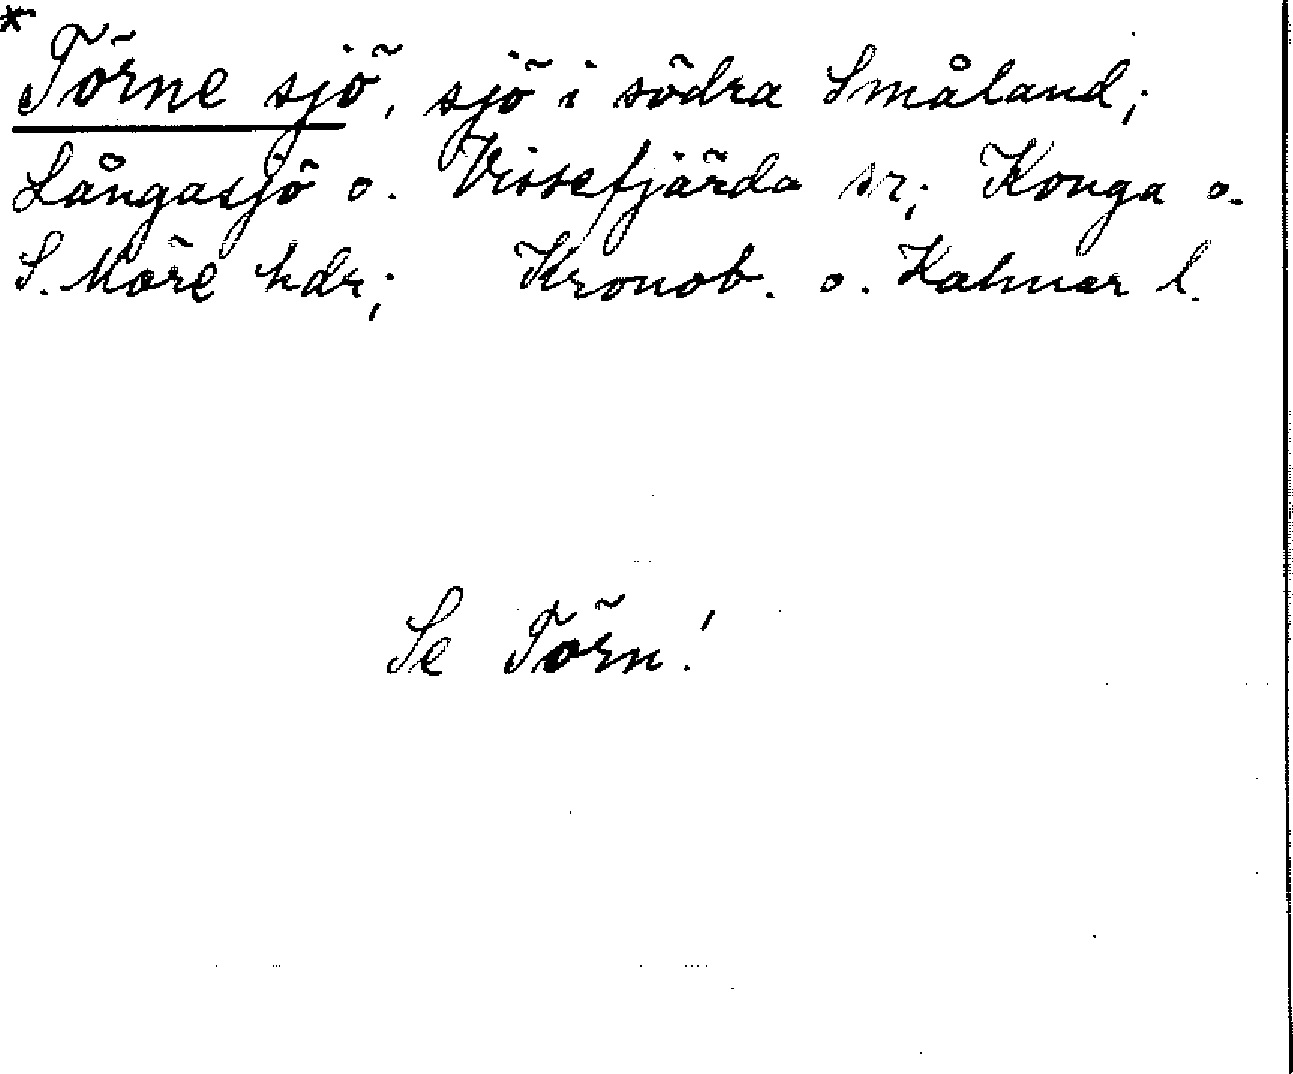 * Törne sjö, sjö i södra Småland;
Långasjö o. Vissefjärda sr; Konga o.
S. Möre hdr; Kronob. o. Kalmar l.
Se Törn!